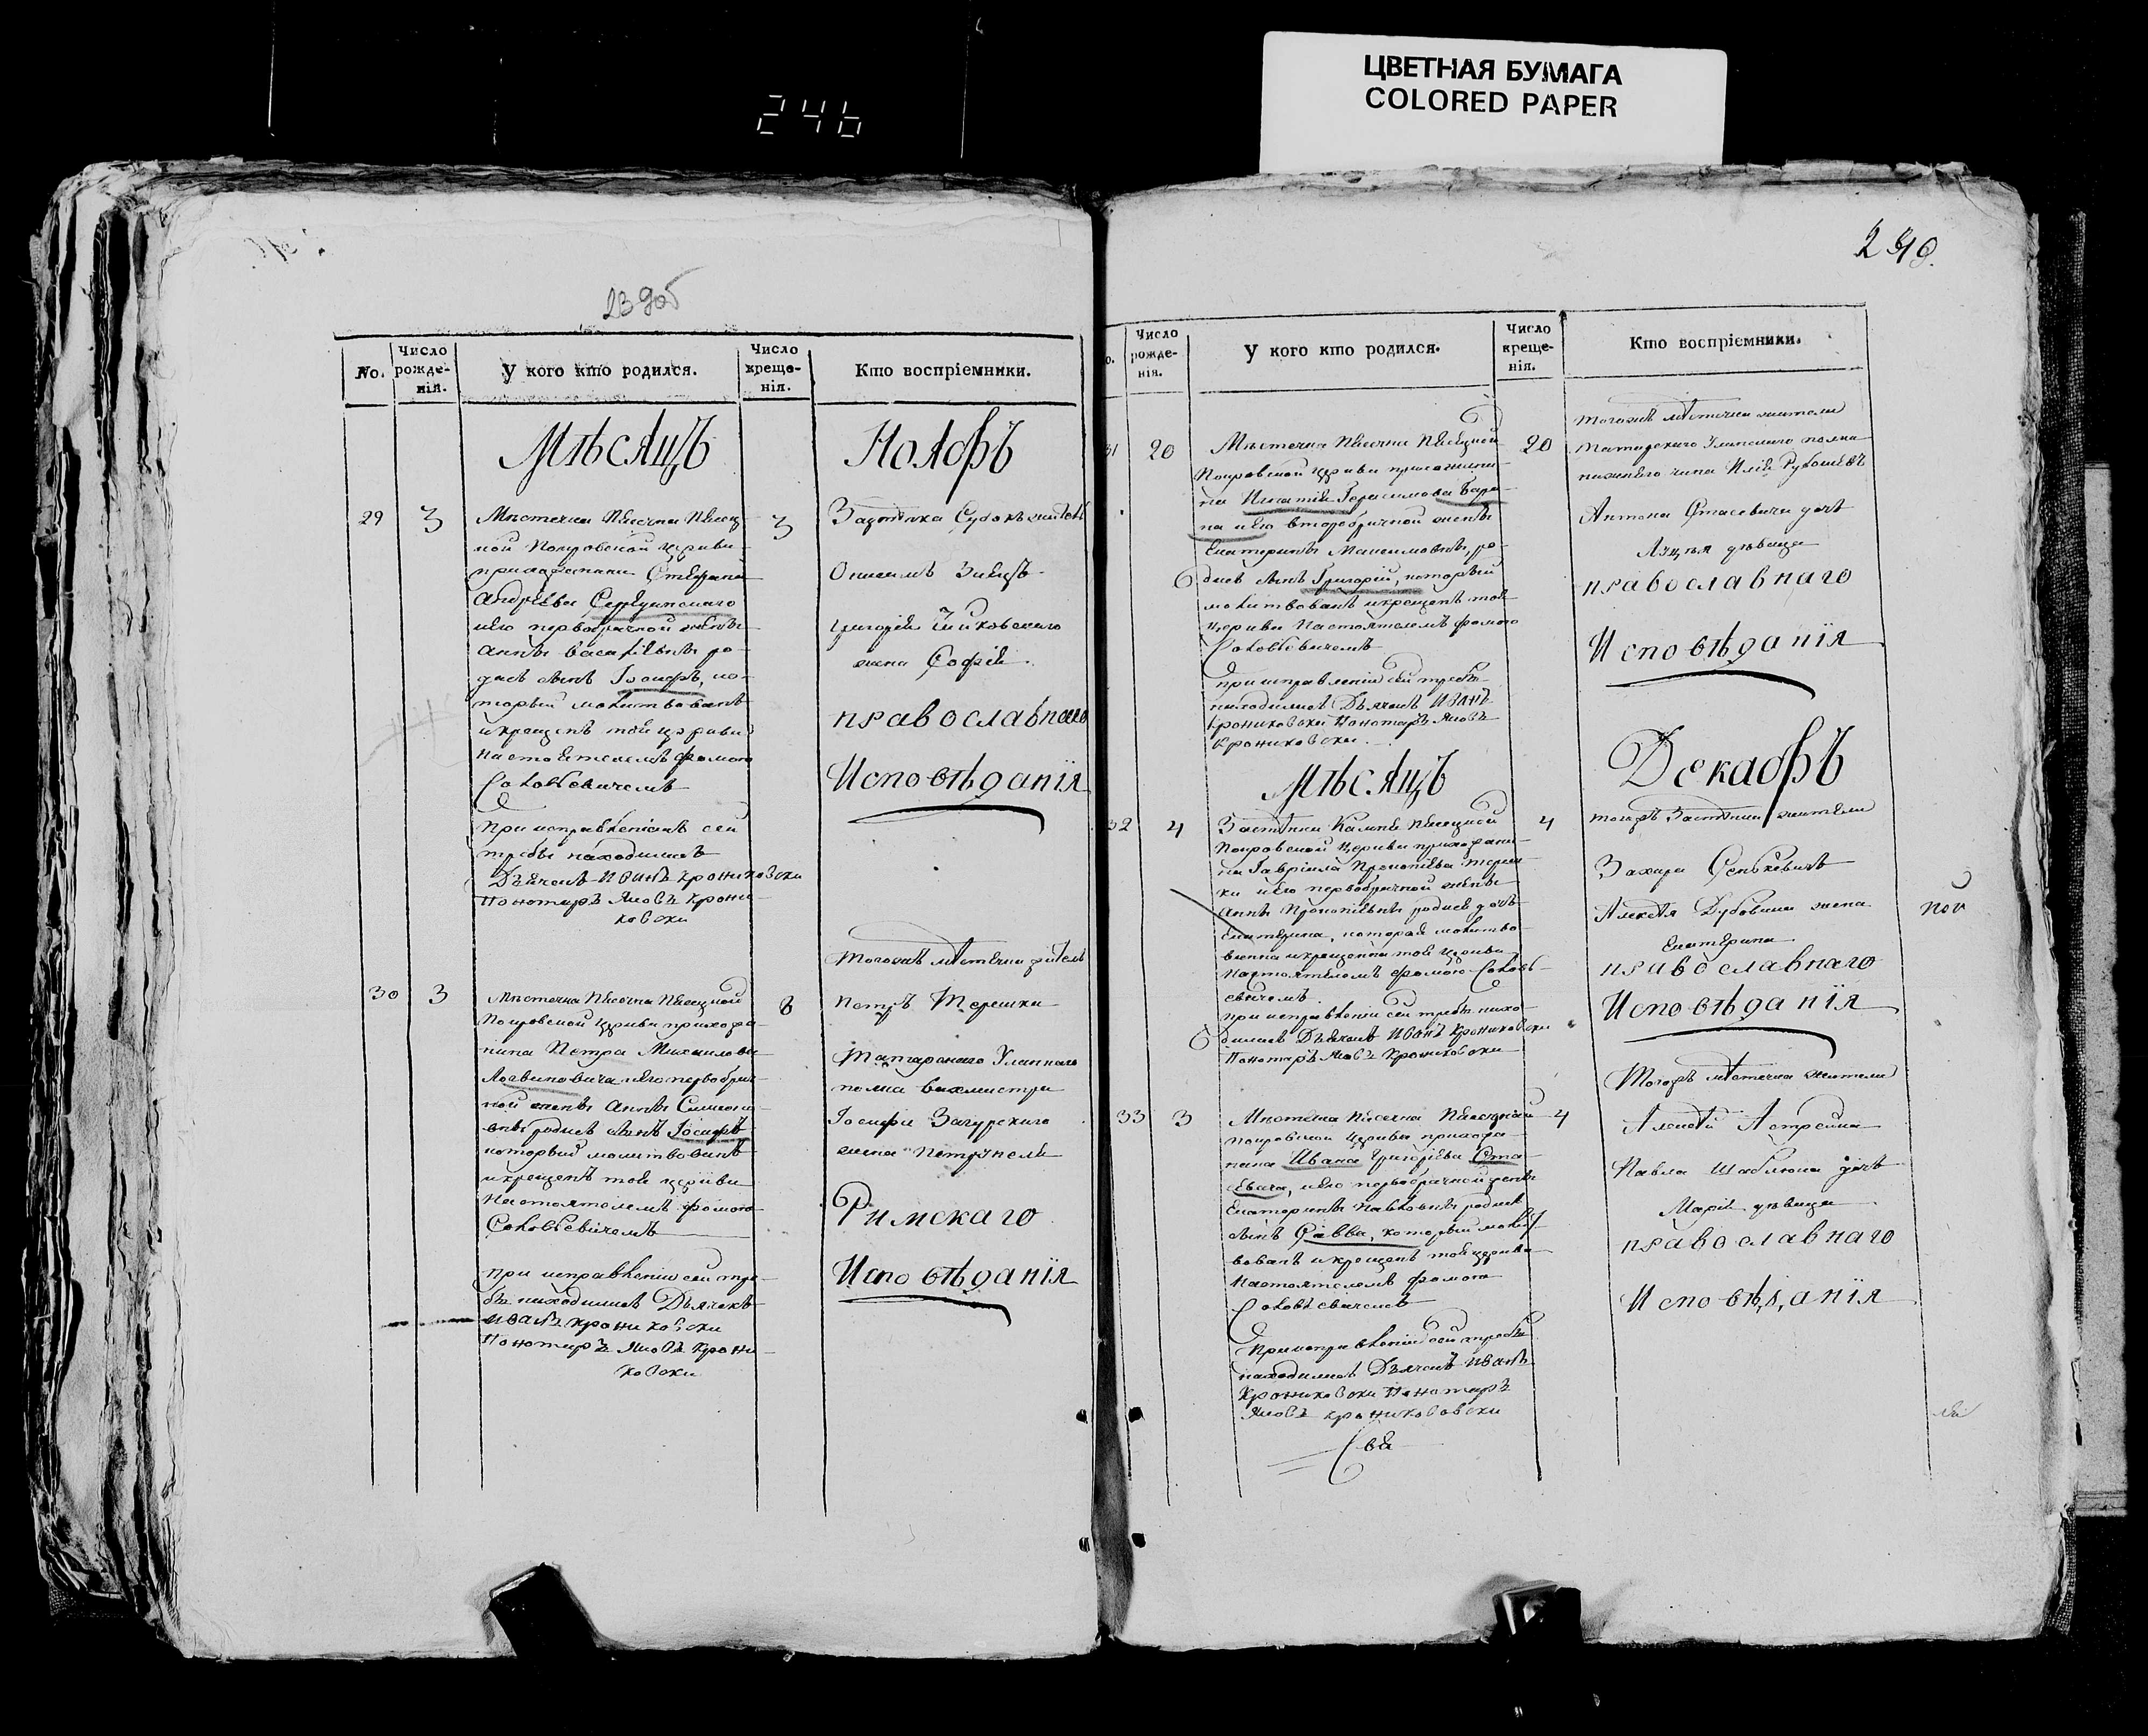 ЦВЕТНАЯ БУМАГА
COLORED PAPER
246
239об
No.
Число рожде-нія.
У кого кто родился.
Число креще-нія.
Кто воспріемники.
Мѣсяцъ
Ноябрь
29
3
Мѣстечка Пѣсочна Пѣсец
кой Покровской церкви
прихожанина Стефана
Андрѣева
иего первобрачной жены
Анны Василѣвны ро
дился сынъ Іосифъ, ко
торый молитвованъ
икрещенъ той церкви
настоятелемъ Фомою
Соловѣевичемъ
При исправленіи сей
требы находились
Дьячекъ Иванъ Крониковски
Пономаръ Яковъ Крони
ковски
3
Григорія
жена Софія.
православнаго
Исповѣданія
30
3
Мѣстечка Пѣсочна Пѣсецкой
Покровской церкви прихожа
нина Петра Михаилова
Логвиновича иего первобрач
ной жены Анны Симоно
вны родился сынъ Іосифъ
который молитвованъ
икрещенъ той церкви
Настоятелемъ Фомою
Соловѣевичемъ
при исправленіи сей тре
бы находились Дьячекъ
Иванъ Крониковски
Пономаръ Яковъ Крони
ковски
8
Тогожъ мѣстечка житель
Петръ Терешка
Татарскаго Уланнаго
полка вахмистра
Іосифа Загурскаго
жена Петрунеля
Римскаго
Исповѣданія
240.
Число рожде-нія.
У кого кто родился.
Число креще-нія.
Кто воспріемники.
31
20
Мѣстечка Пѣсочна Пѣсецкой
Покровской церкви прихожани
на Игнатія Герасимова Бара
на иего второбрачной жены
Екатерины Максимовны, ро
дился сынъ Григорій, который
молитвованъ икрещенъ той
церкви Настоятелемъ Фомою
Соловѣевичемъ
при исправленіи сей требы
находились Дьячекъ Иванъ
Крониковски Пономаръ Яковъ
Крониковски.
20
тогожъ мѣстечка жители
татарскаго Уланскаго полка
нижнего чина Илія
Антона Стасевича дочь
дѣвица
православнаго
Исповѣданія
Мѣсяцъ
Декабрь
32
4
Застѣнка Камня Пѣсецкой
Покровской Церкви прихожани
на Гавріила Прокопіева Тереш
ки иего первобрачной жены
Анны Прокопіевны родися дочь
Екатерина, которая молитво
вана икрещенна той церкви
Настоятелемъ Фомою Соловѣ
евичемъ
при исправленіи сей требы нахо
дились Дьячекъ Иванъ Крониковски
Пономаръ Яковъ Крониковски
4
тогожъ Застѣнка жители
Захара Сенкевичъ
Алексѣя жена
Екатерина
православнаго
Исповѣданія
33
3
Мѣстечка Пѣсочна Пѣсецкой
Покровской Церкви прихожа
нина Ивана Григоріева Ста
севича, иего первобрачной жены
Екатерины Павловны родися
сынъ Савва, который молит
вованъ икрещенъ той церкви
Настоятелемъ Фомою
Соловѣевичемъ
При исправленіи сей требы
находились Дьячекъ Иванъ
Крониковски Пономаръ
Яковъ Крониковски
4
Тогожъ мѣстечка жители
Алексѣй Астрейка
Павла Шаблюка дочь
Марія дѣвица
православнаго
Исповѣданія